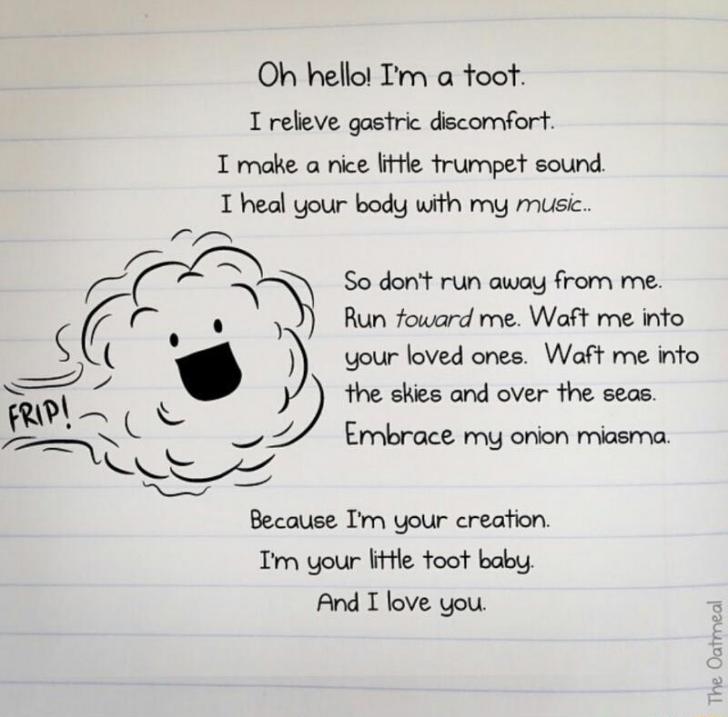 Oh hello! I'm a toot.
I relieve gastric discomfort.
I make a nice little trumpet sound.
I heal your body with my music..
So don't run away from me.
Run toward me. Waft me into
your loved ones. Waft me into
the skies and over the seas.
Embrace my onion miasma.
FRIP!
Because I'm your creation.
I'm your little toot baby.
And I love you.
The Oatmeal